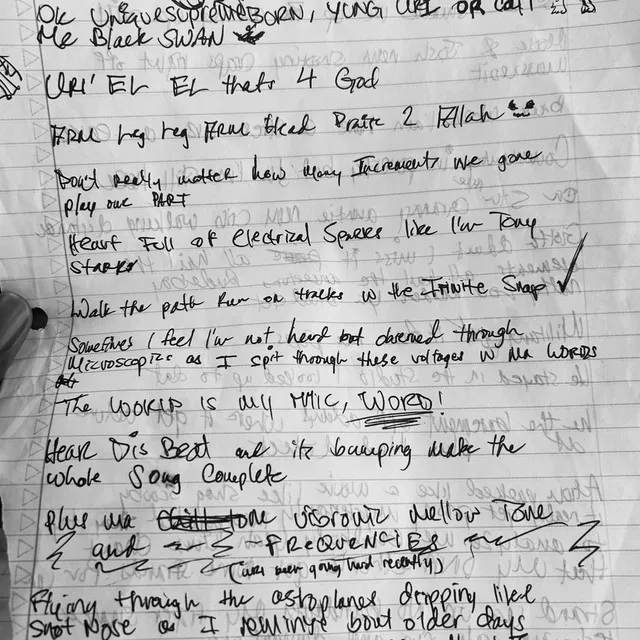 OK UNiQUeSUPReMeBORN, YUNG URI OR CALL
Me Black SWAN
URi' EL EL thats 4 God
ARM Leg Leg ARM Head Praise 2 Allah
Don't really matter how many Increments we gone
play our PART
Heart Full of Electrical Sparks like I'm Tony
Starks
Walk the path Run on tracks w the Infinite Snaps
Sometimes I feel I'm not heard but observed through
Microscopics as I spit through these voltages w Ma WORDS
The WORLD is my MMIC, WORD!
Hear Dis Beat and its bumping make the
whole Song Complete
plus ma tone vibronic mellow Tone
and FREQUENCIES
(been going hard recently)
Flying through the astroplanes dripping like
Snot Nose as I reminise bout older days